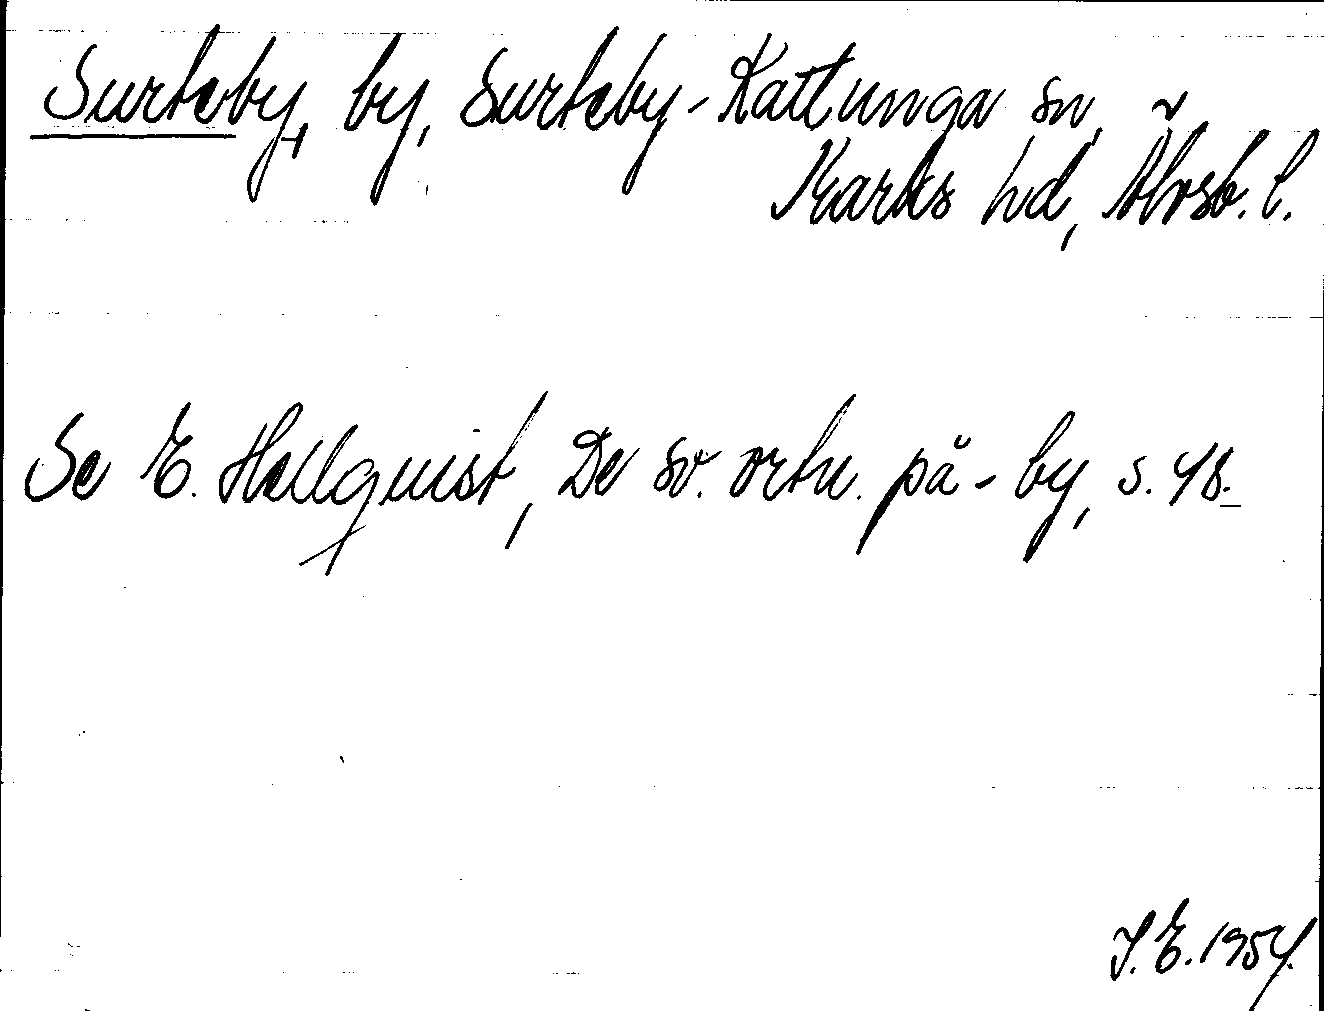 Surteby, by, Surteby-Kattunga sn,
Marks hd, Älvsb. l.
Se E. Hellquist, De sv. ortn. på -by, s. 48.
I.E. 1954.